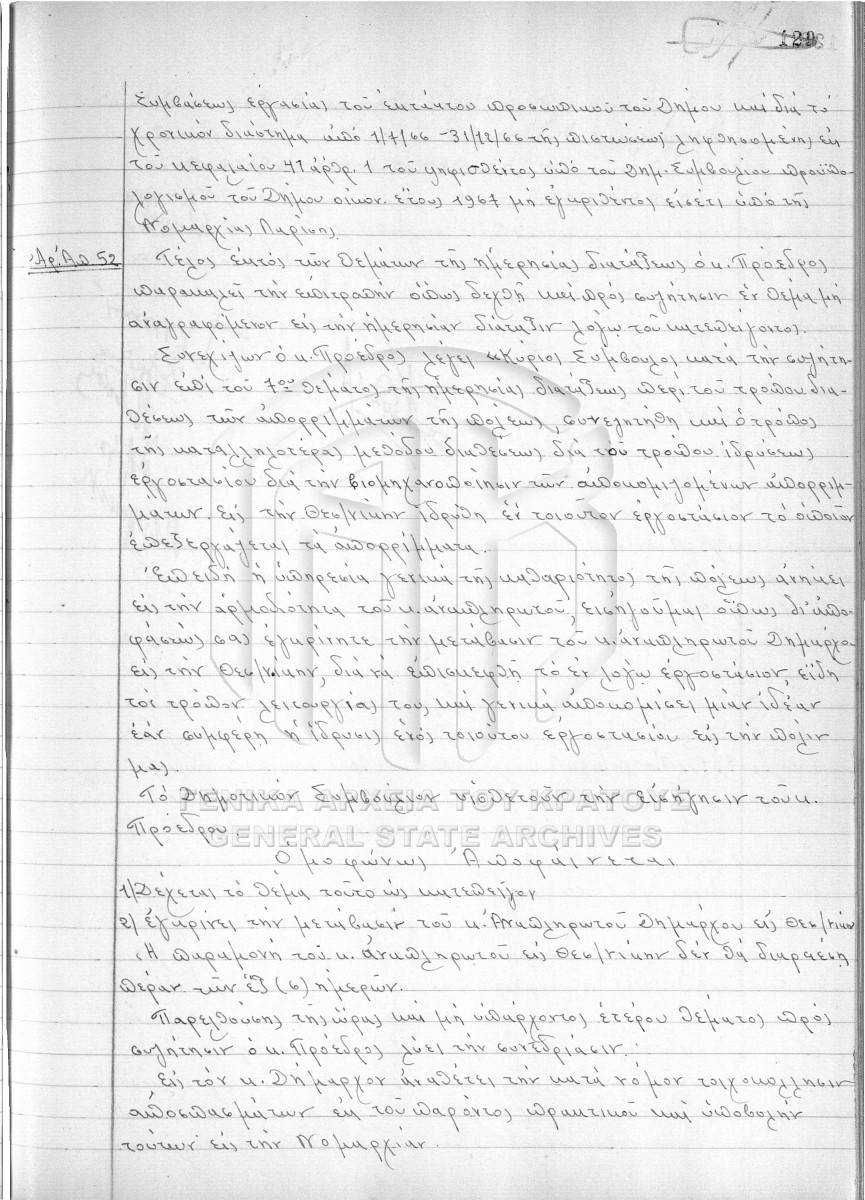 129
Συμβάσεως ἐργασίας τοῦ ἐκτάκτου προσωπικοῦ τοῦ Δήμου καί διά τό
χρονικόν διάστημα ἀπό 1/7/66 - 31/12/66 τῆς πιστώσεως ληφθησομένης ἐκ
τοῦ κεφαλαίου 41 ἄρθρ. 1 τοῦ ψηφισθέντος ὑπό τοῦ Δημ. Συμβουλίου προϋπο-
λογισμοῦ τοῦ Δήμου οἰκον. ἔτους 1967 μή ἐγκριθέντος εἰσέτι ὑπό τῆς
Νομαρχίας Λαρίσης
Ἀρ. Ἀπ. 52
Τέλος ἐκτός τῶν θεμάτων τῆς ἡμερησίας διατάξεως ὁ κ. Πρόεδρος
παρακαλεῖ τήν ἐπιτροπήν ὅπως δεχθῇ καί πρός συζήτησιν ἕν θέμα μή
ἀναγραφόμενον εἰς τήν ἡμερησίαν διάταξιν λόγω τοῦ κατεπείγοντος.
Συνεχίζων ὁ κ. Πρόεδρος λέγει "Κύριοι Σύμβουλοι κατά τήν συζήτη-
σιν ἐπί τοῦ 7ου θέματος τῆς ἡμερησίας διατάξεως περί τοῦ τρόπου δια-
θέσεως τῶν ἀπορριμμάτων τῆς πόλεως, συνεζητήθη καί ὁ τρόπος
τῆς καταλληλοτέρας μεθόδου διαθέσεως διά τοῦ τρόπου ἱδρύσεως
ἐργοστασίου διά τήν βιομηχανοποίησιν τῶν ἀποκομιζομένων ἀπορριμ-
μάτων. Εἰς τήν Θεσ/νίκην ἱδρύθη ἕν τοιοῦτον ἐργοστάσιον τό ὁποῖον
ἐπεξεργάζεται τά ἀπορρίμματα.
Ἐπειδή ἡ ὑπηρεσία γενικά τῆς καθαριότητος τῆς πόλεως ἀνήκει
εἰς τήν ἁρμοδιότητα τοῦ κ. ἀναπληρωτοῦ, εἰσηγοῦμαι ὅπως δι' ἀπο-
φάσεώς σας ἐγκρίνητε τήν μετάβασιν τοῦ κ. ἀναπληρωτοῦ Δημάρχου
εἰς τήν Θεσ/νίκην, διά νά ἐπισκεφθῇ τό ἐν λόγω ἐργοστάσιον, εἴδη
τόν τρόπον λειτουργίας του, καί γενικά ἀποκομίσει μίαν ἰδέαν
ἐάν συμφέρη ἡ ἵδρυσις ἑνός τοιούτου ἐργοστασίου εἰς τήν πόλιν
μας.
Τό Δημοτικόν Συμβούλιον υἱοθετοῦν τήν εἰσήγησιν τοῦ κ.
Προέδρου
Ὁμοφώνως Ἀποφαίνεται
1/ Δέχεται τό θέμα τοῦτο ὡς κατεπεῖγον
2/ Ἐγκρίνει τήν μετάβασιν τοῦ κ. Ἀναπληρωτοῦ Δημάρχου εἰς Θεσ/νίκην
Ἡ παραμονή τοῦ κ. ἀναπληρωτοῦ εἰς Θεσ/νίκην δέν θά διαρκέσῃ
πέραν τῶν ἕξ (6) ἡμερῶν.
Παρελθούσης τῆς ὥρας καί μή ὑπάρχοντος ἑτέρου θέματος πρός
συζήτησιν ὁ κ. Πρόεδρος λύει τήν συνεδρίασιν.
Εἰς τόν κ. Δήμαρχον ἀναθέτει τήν κατά νόμον τοιχοκόλλησιν
ἀποσπασμάτων ἐκ τοῦ παρόντος πρακτικοῦ καί ὑποβολήν
τούτων εἰς τήν Νομαρχίαν.
ΓΕΝΙΚΑ ΑΡΧΕΙΑ ΤΟΥ ΚΡΑΤΟΥΣ
GENERAL STATE ARCHIVES